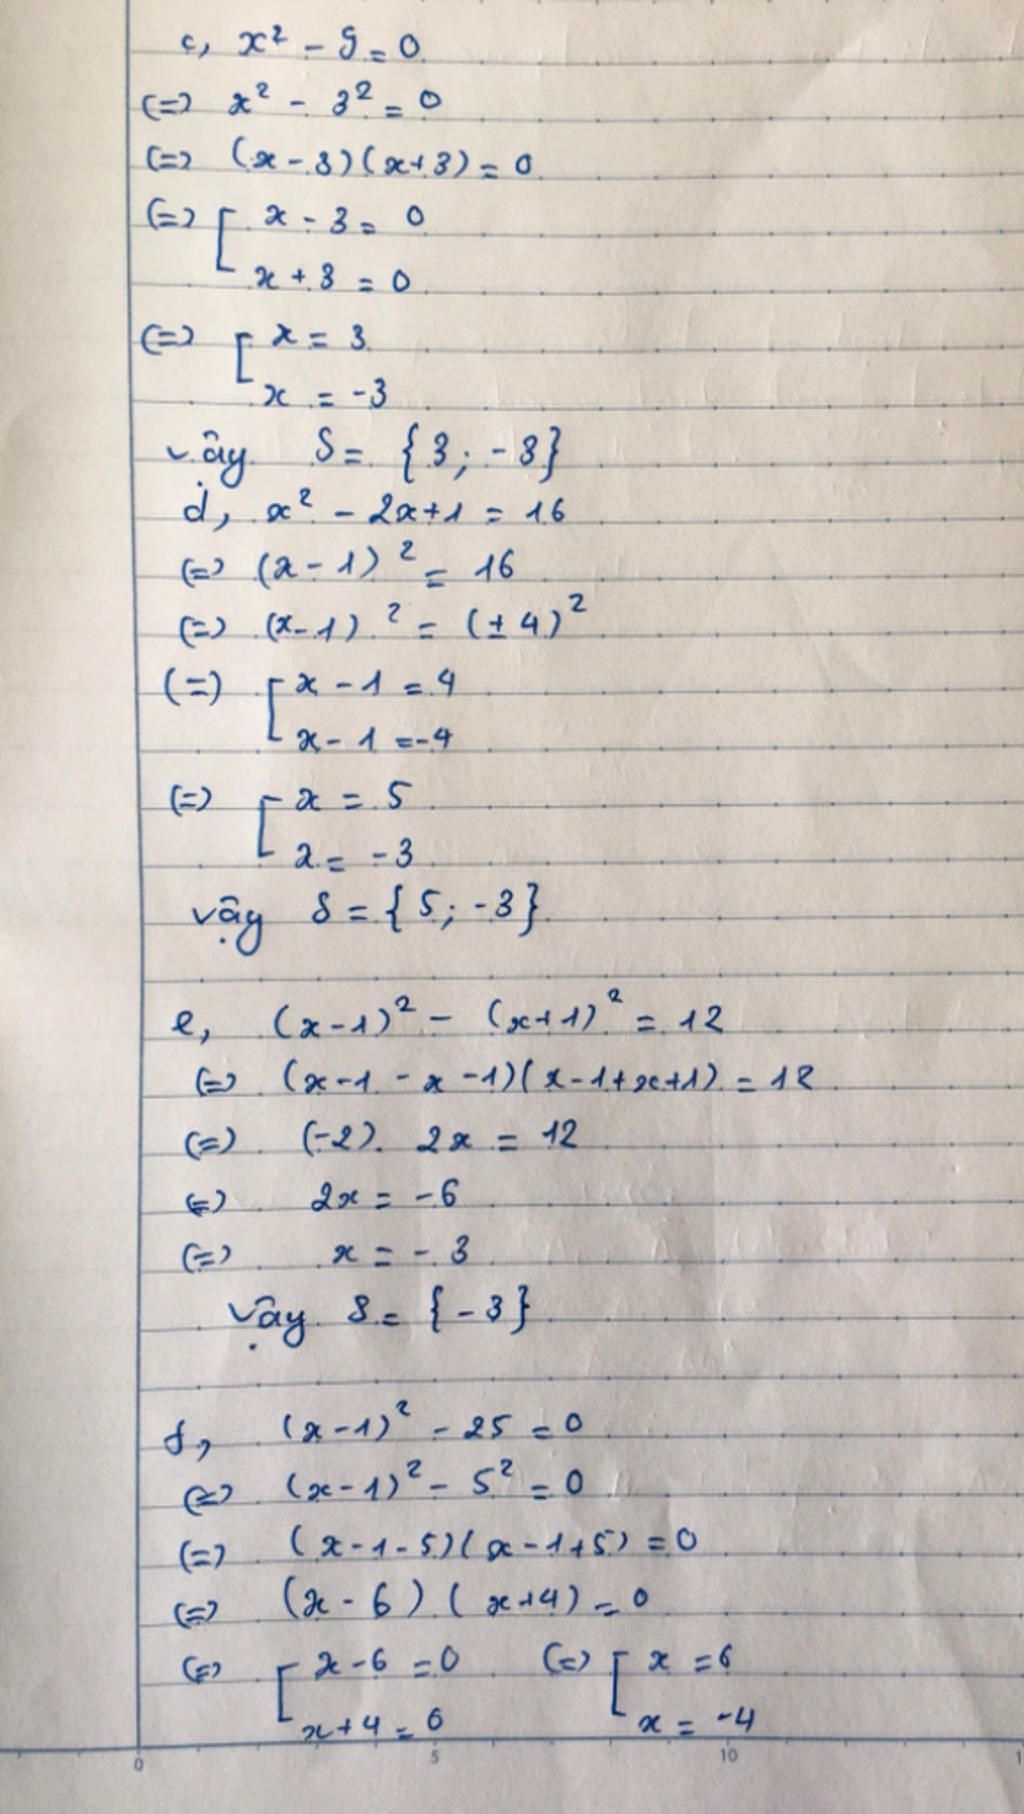 c, x² - 9 = 0
(=) x² - 3² = 0
(=) (x - 3)(x+3) = 0
(=) [ x - 3 = 0
x + 3 = 0
(=) [ x = 3
x = -3
vậy S = {3; -3}
d, x² - 2x+1 = 16
(=) (x - 1)² = 16
(=) (x-1)² = (±4)²
(=) [ x - 1 = 4
x - 1 = -4
(=) [ x = 5
x = -3
vậy S = {5; -3}
e, (x-1)² - (x+1)² = 12
(=) (x-1 - x -1)(x-1+x+1) = 12
(=) (-2). 2x = 12
(=) 2x = -6
(=) x = -3
Vậy S = {-3}
f, (x-1)² - 25 = 0
(=) (x-1)² - 5² = 0
(=) (x-1-5)(x-1+5) = 0
(=) (x-6)(x+4) = 0
(=) [ x-6 = 0 (=) [ x = 6
x+4 = 0 x = -4
0 5 10 1